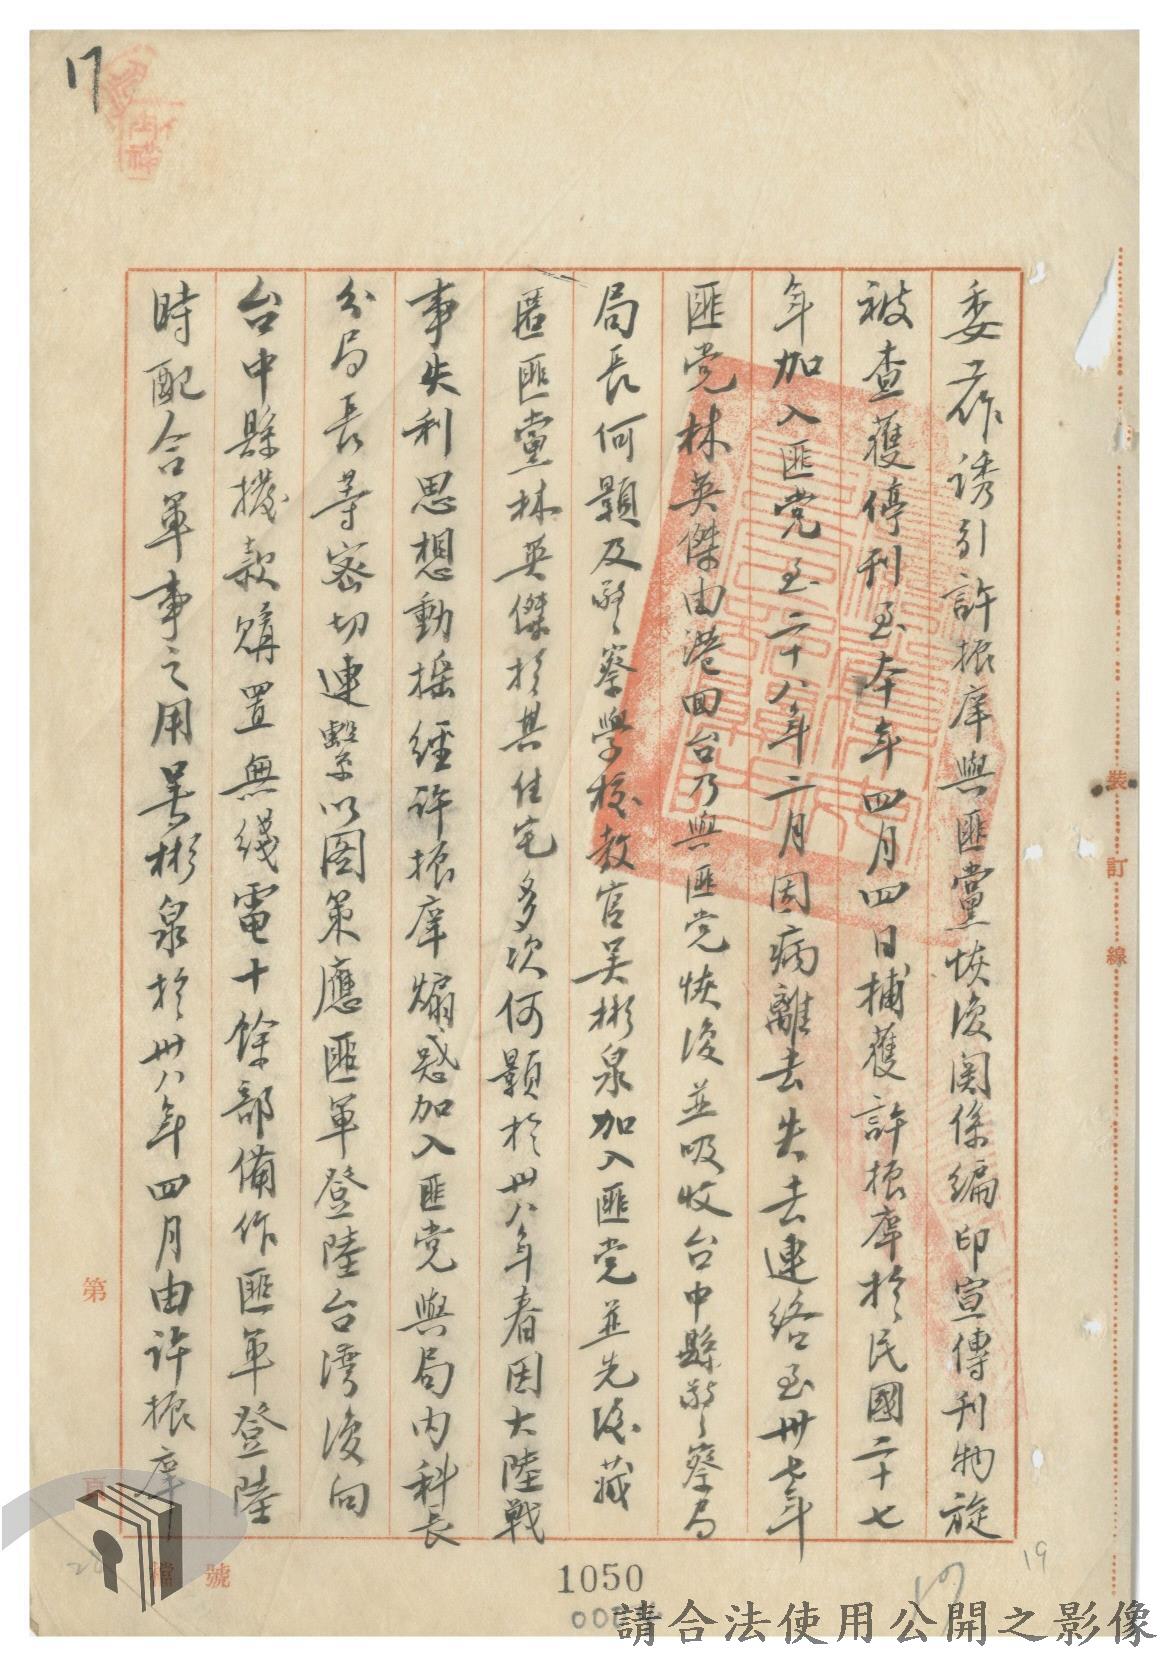 17
委工作誘引許振庠與匪黨恢復関係編印宣傳刊物旋
被查獲停刊至本年四月四日捕獲許振庠於民國二十七
年加入匪党至二十八年二月因病離去失去連絡至卅七年
匪党林英傑由港回台乃與匪党恢復並吸收台中縣警察局
局長何顯及警察學校教官吳彬泉加入匪党並先後藏
匿匪黨林英傑於其住宅多次何顯於卅八年春因大陸戰
事失利思想動搖經許振庠煽惑加入匪党與局內科長
分局長等密切連繫以图策應匪軍登陸台灣後向
台中縣撥款購置無线電十餘部備作匪軍登陸
時配合軍事之用吳彬泉於卅八年四月由许振庠
裝
訂
線
第
頁
檔 號
1050
19
請合法使用公開之影像